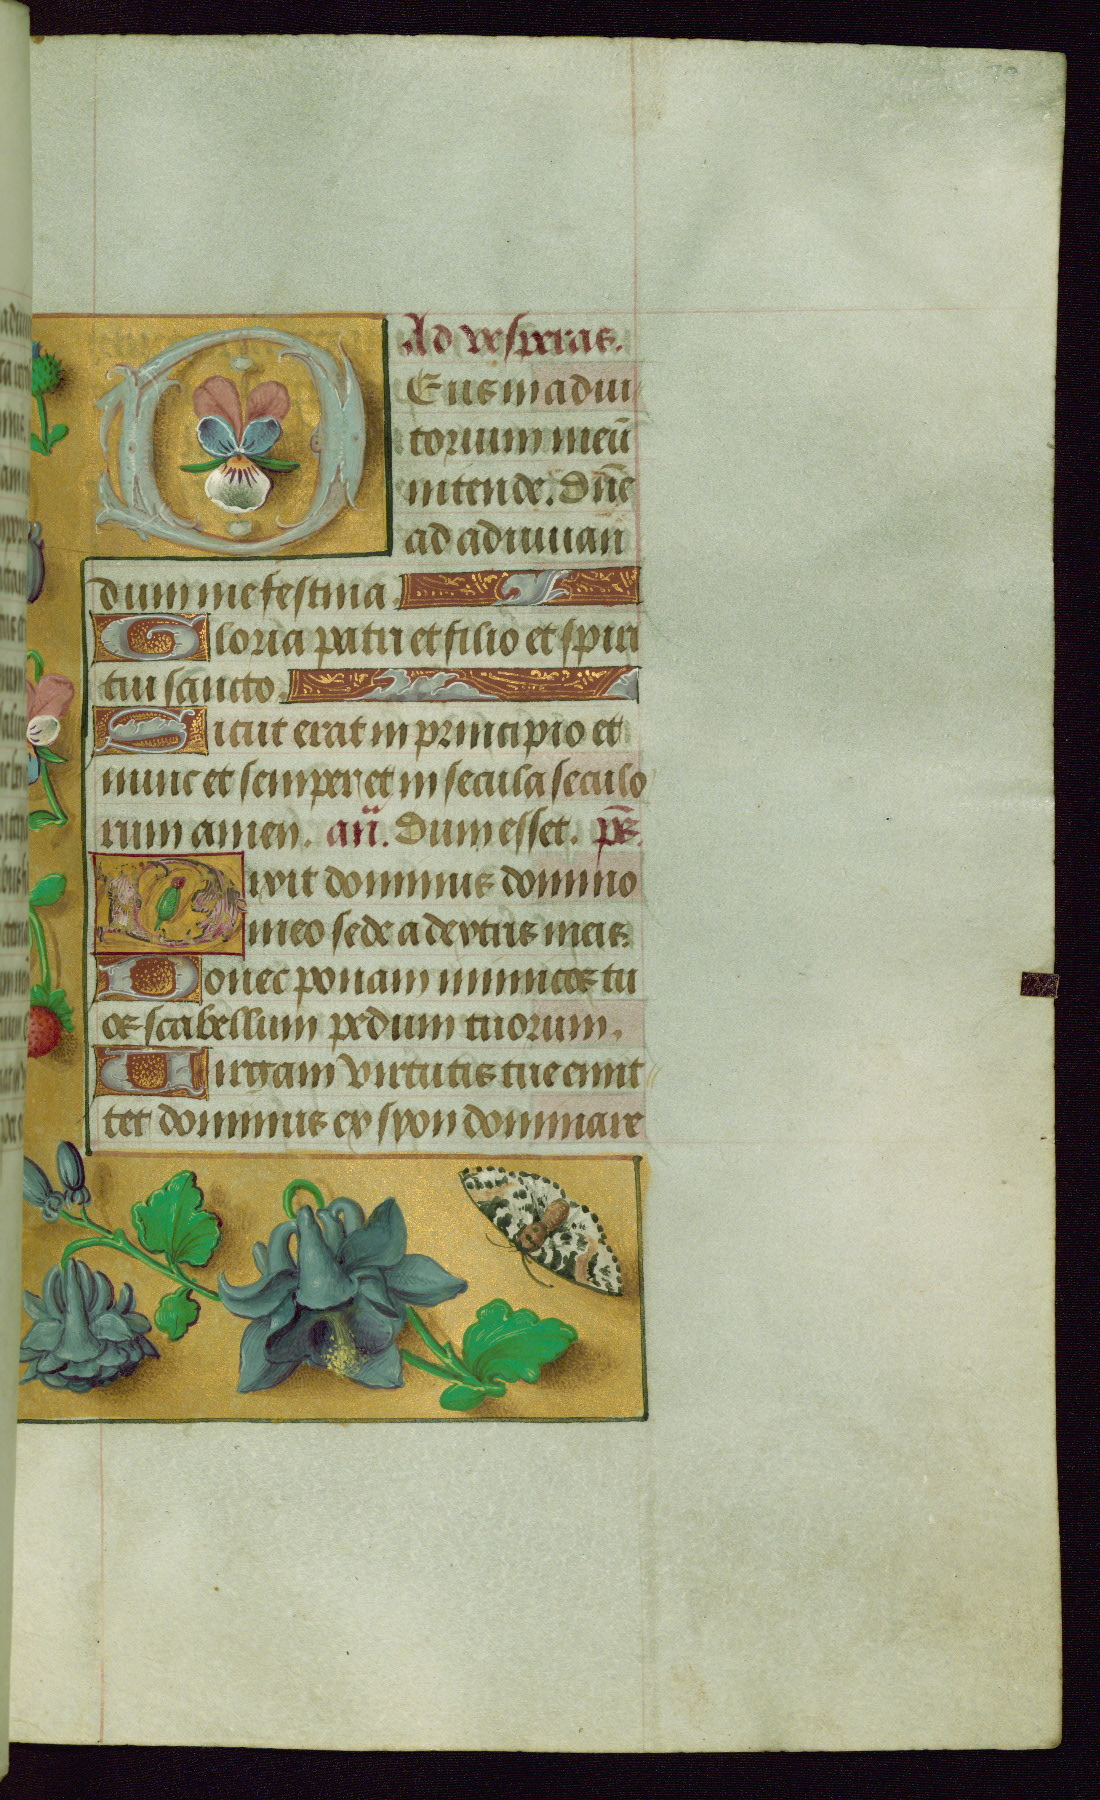 Ad vesperas.
Deus in adiu
torium meū
intende. Dñe
ad adiuuan
dum me festina.
Gloria patri et filio et spiri
tui sancto.
Sicut erat in principio et
nunc et semper et in secula seculo
rum amen. añ. Dum esset. ps̄.
Dixit dominus domino
meo sede a dextris meis.
Donec ponam inimicos tu
os scabellum pedum tuorum.
Uirgam virtutis tue emit
tet dominus ex syon dominare